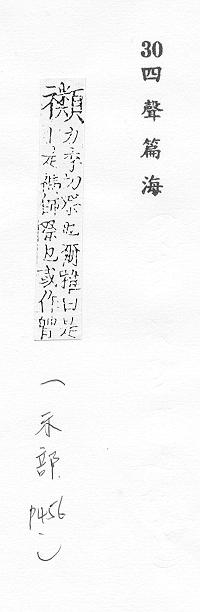 30 四聲篇海
禷 力季切祭也爾雅曰是
是禡師祭也或作
（示部 p456）